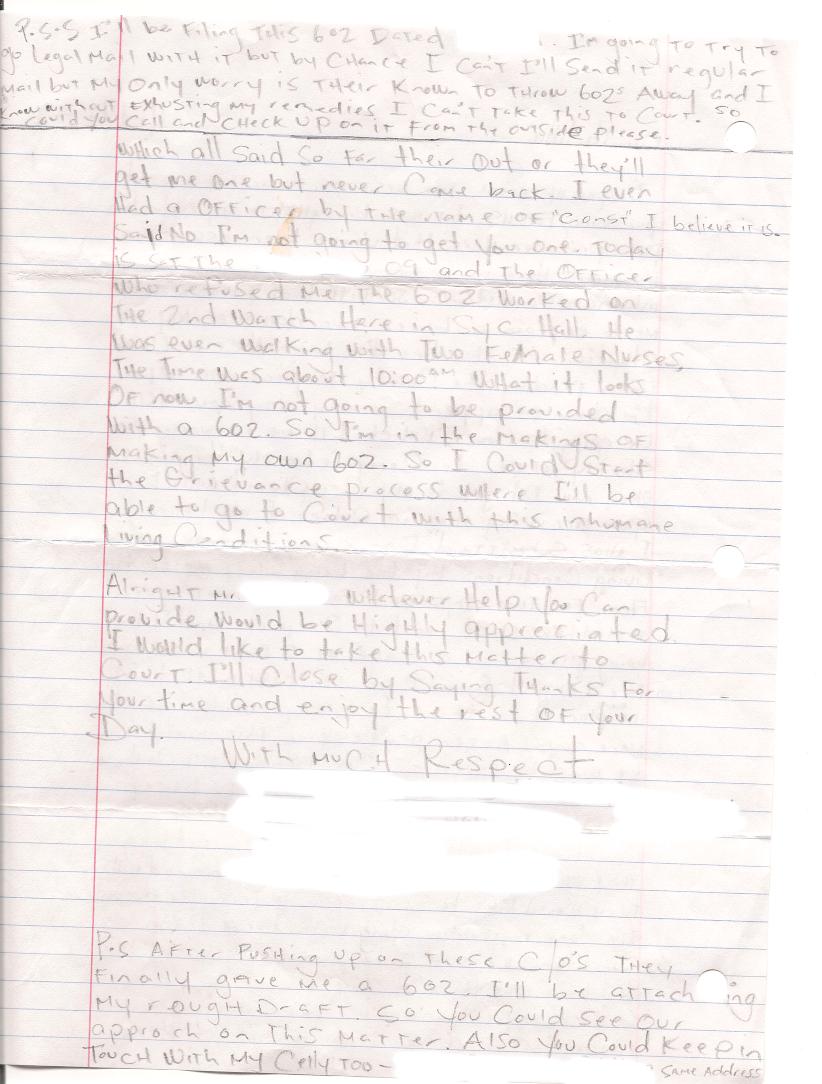 P.S.S I'll be Filing This 602 Dated . I'm going To Try To
go Legal Mail WITH it but by Chance I Can't I'll Send it regular
Mail but My Only worry is Their Known To Throw 602s Away and I
know without Exhusting my remedies I Can't Take This To Court. So
Could you Call and CHeck Up on it From the outside please.
Which all Said So Far their Out or they'll
get me one but never Came back. I even
Had a OFFicer by the name OF "Const" I believe it is.
Said No I'm not going to get You one. Today
is S.T The , 09 and The OFFicer
Who refused Me The 602 Worked on
The 2nd Watch Here in Syc. Hall. He
Was even Walking with Two Female Nurses,
The Time was about 10:00 AM What it looks
Of now I'm not going to be provided
With a 602. So I'm in the Makings OF
Making My own 602. So I Could Start
the Grievance process where I'll be
able to go to Court with this inhumane
Living Conditions.
Alright Mr. Whatever Help You Can
provide Would be Highly appreciated.
I Would like to take this Matter to
Court. I'll Close by Saying Thanks For
Your time and enjoy the rest OF your
Day.
With Much Respect
P.S After Pushing Up on These C/O's They
Finally gave Me a 602. I'll be attaching
My rough Draft. So You Could See Our
approch on This Matter. Also You Could Keep in
Touch With My Celly Too -
Same Address